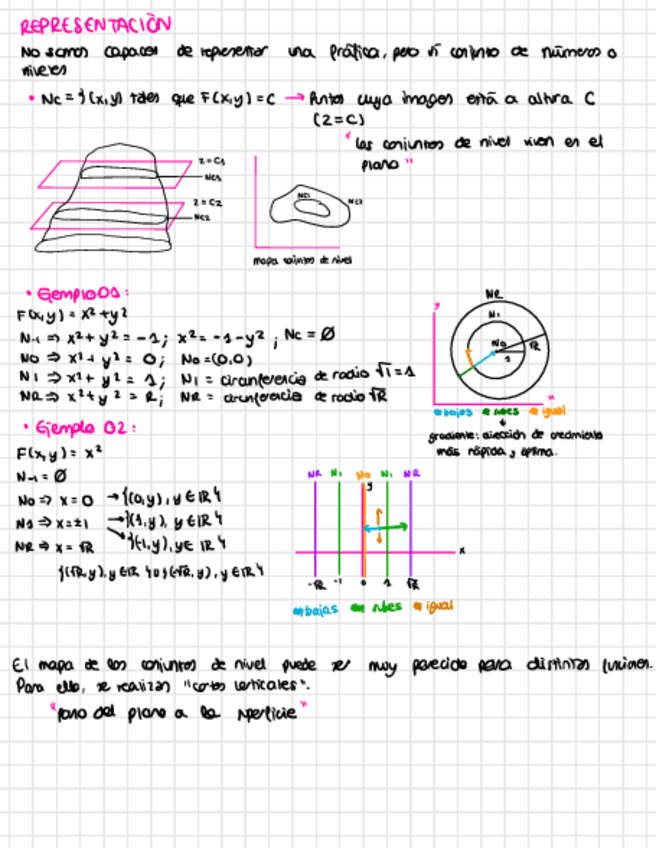 REPRESENTACIÓN
No somos capaces de representar una gráfica, pero sí conjunto de números o
niveles
• Nc = {(x,y) tales que F(x,y) = C → Puntos cuya imagen está a altura C
(z=C)
"los conjuntos de nivel viven en el
plano"
z = C1
NC1
z = C2
NC2
NC1
NC2
mapa conjuntos de nivel
• Ejemplo 01:
F(x,y) = x² + y²
N-1 ⇒ x² + y² = -1; x² = -1 - y²; Nc = Ø
N0 ⇒ x² + y² = 0; N0 = (0,0)
N1 ⇒ x² + y² = 1; N1 = circunferencia de radio √1 = 1
NR ⇒ x² + y² = R; NR = circunferencia de radio √R
NR
N1
N0
√R
1
y
x
bajas subes igual
gradiente: dirección de crecimiento
más rápida y óptima.
• Ejemplo 02:
F(x,y) = x²
N-1 = Ø
N0 ⇒ x = 0 → {(0,y), y ∈ IR}
N1 ⇒ x = ±1 → {(1,y), y ∈ IR}
NR ⇒ x = √R {(-1,y), y ∈ IR}
{(√R,y), y ∈ IR} o {(-√R,y), y ∈ IR}
NR N1 N0 N1 NR
y
x
-√R -1 0 1 √R
bajas subes igual
El mapa de los conjuntos de nivel puede ser muy parecido para distintas funciones.
Para ello, se realizan "cortes verticales".
"paso del plano a la superficie"